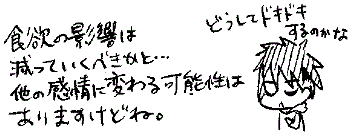 食欲の影響は
減っていくべきかと…
他の感情に変わる可能性は
ありますけどね。
どうしてドキドキ
するのかな